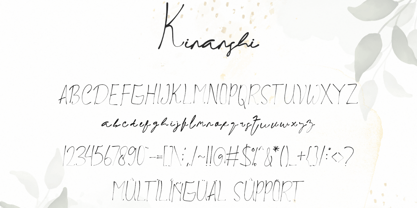 Kinanshi
ABCDEFGHIJKLMNOPQRSTUVWXYZ
abcdefghijklmnopqrstuvwxyz
MULTILINGUAL SUPPORT